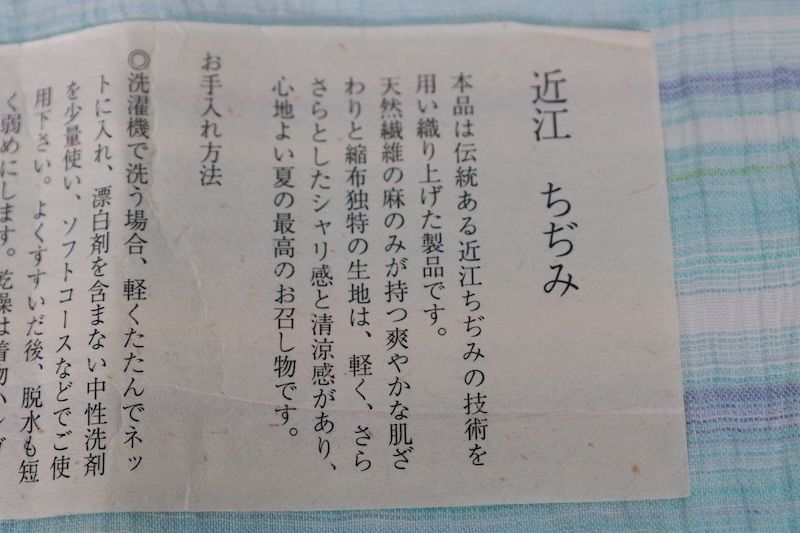 近江 ちぢみ
本品は伝統ある近江ちぢみの技術を
用い織り上げた製品です。
天然繊維の麻のみが持つ爽やかな肌ざ
わりと縮布独特の生地は、軽く、さら
さらとしたシャリ感と清涼感があり、
心地よい夏の最高のお召し物です。
お手入れ方法
◎洗濯機で洗う場合、軽くたたんでネッ
トに入れ、漂白剤を含まない中性洗剤
を少量使い、ソフトコースなどでご使
用下さい。よくすすいだ後、脱水も短
く弱めにします。乾燥は着物ハンガ